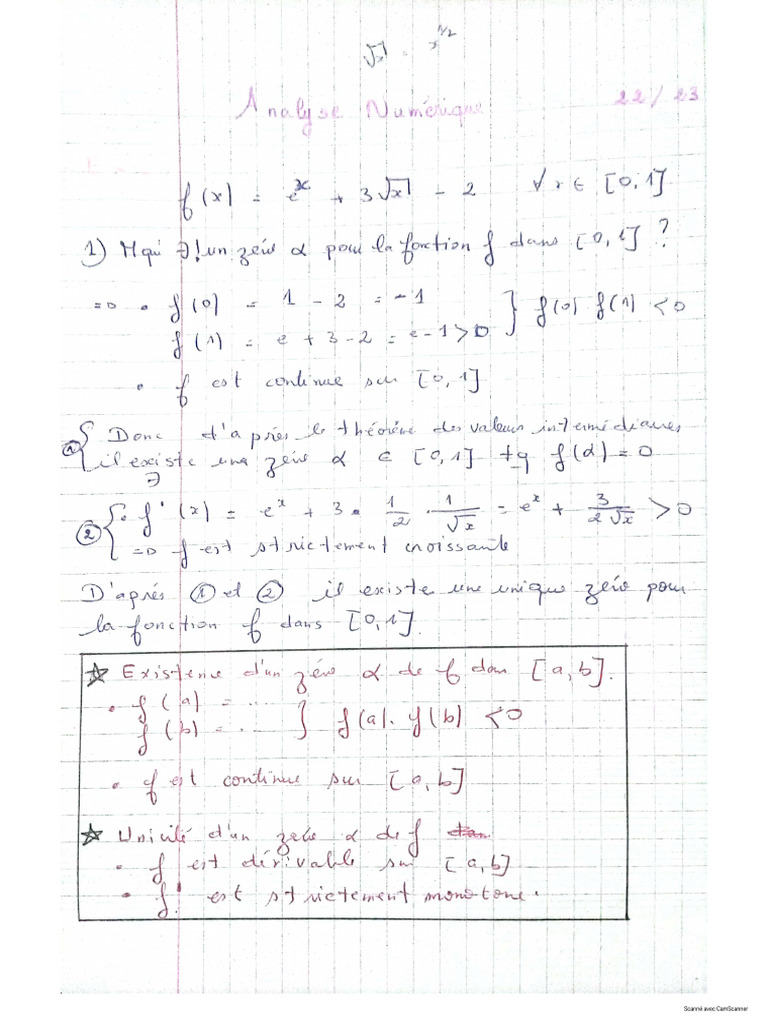 √x = x^1/2
Analyse Numérique 22/23
f(x) = e^x + 3√x - 2 ∀x∈ [0,1]
1) Mqui ∃! un zéro α pour la fonction f dans [0,1] ?
=> • f(0) = 1 - 2 = -1 } f(0) f(1) < 0
f(1) = e + 3 - 2 = e - 1 > 0
• f est continue sur [0,1]
① { Donc d'après le théorème des valeurs intermédiaires
il existe una zéro α ∈ [0,1] tq f(α) = 0
∃
② { • f'(x) = e^x + 3 • 1/2 . 1/√x = e^x + 3/(2√x) > 0
=> f est strictement croissante
D'après ① et ② il existe une unique zéro pour
la fonction f dans [0,1].
☆ Existence d'un zéro α de f dan [a,b].
• f(a) = .... } f(a). f(b) < 0
f(b) = ...
• f est continue sur [a,b]
☆ Unicité d'un zéro α de f dan
• f est dérivable sur [a,b]
• f' est strictement monotone.
Scanné avec CamScanner